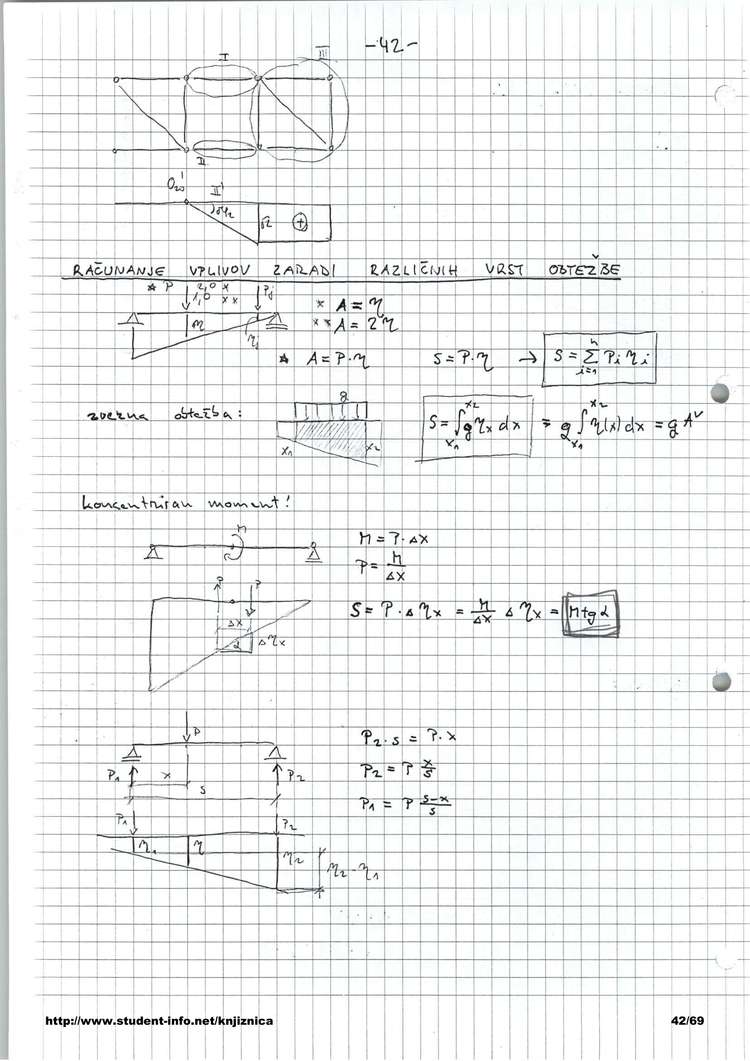 -42-
I III
II
O₂₀' II'
δφ₂ r +
RAČUNANJE VPLIVOV ZARADI RAZLIČNIH VRST OBTEŽBE
* P 2,0 * Pj
1,0 **
* A = η
** A = 2η
η ηj
* A = P·η S = P·η → S = Σ_{i=1}^{n} Pi ηi
zvezna obtežba: g
x₁ x₂
S = ∫_{x₁}^{x₂} g ηx dx = g ∫_{x₁}^{x₂} η(x) dx = g A^v
koncentrisan moment!
M
M = P·Δx
P = M/Δx
P P
Δx
α Δηx
S = P·Δηx = M/Δx Δηx = M tg α
P
P₂·s = P·x
P₁ x P₂
s
P₂ = P x/s
P₁ = P (s-x)/s
P₁ P₂
η₁ η η₂ η₂-η₁
http://www.student-info.net/knjiznica 42/69